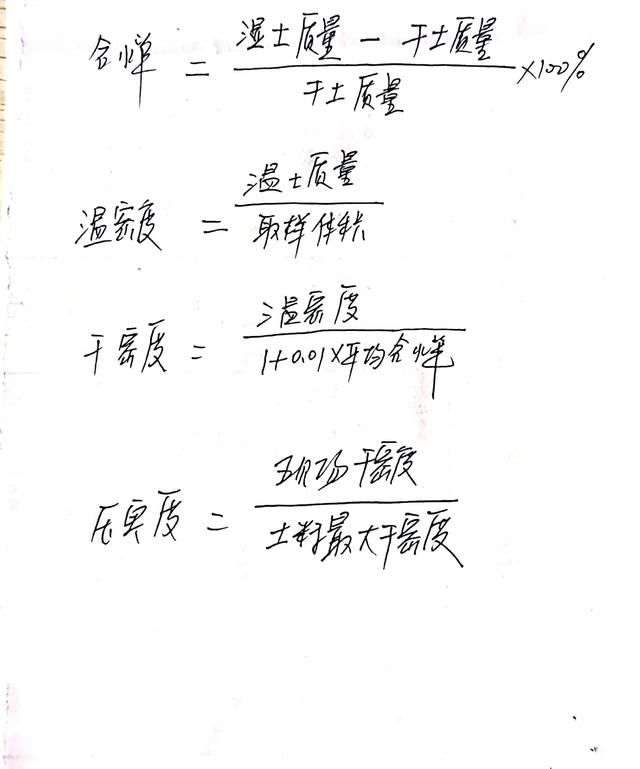 含水率 = 湿土质量 - 干土质量 / 干土质量 ×100%
湿密度 = 湿土质量 / 取样体积
干密度 = 湿密度 / 1+0.01×平均含水率
压实度 = 现场干密度 / 土料最大干密度